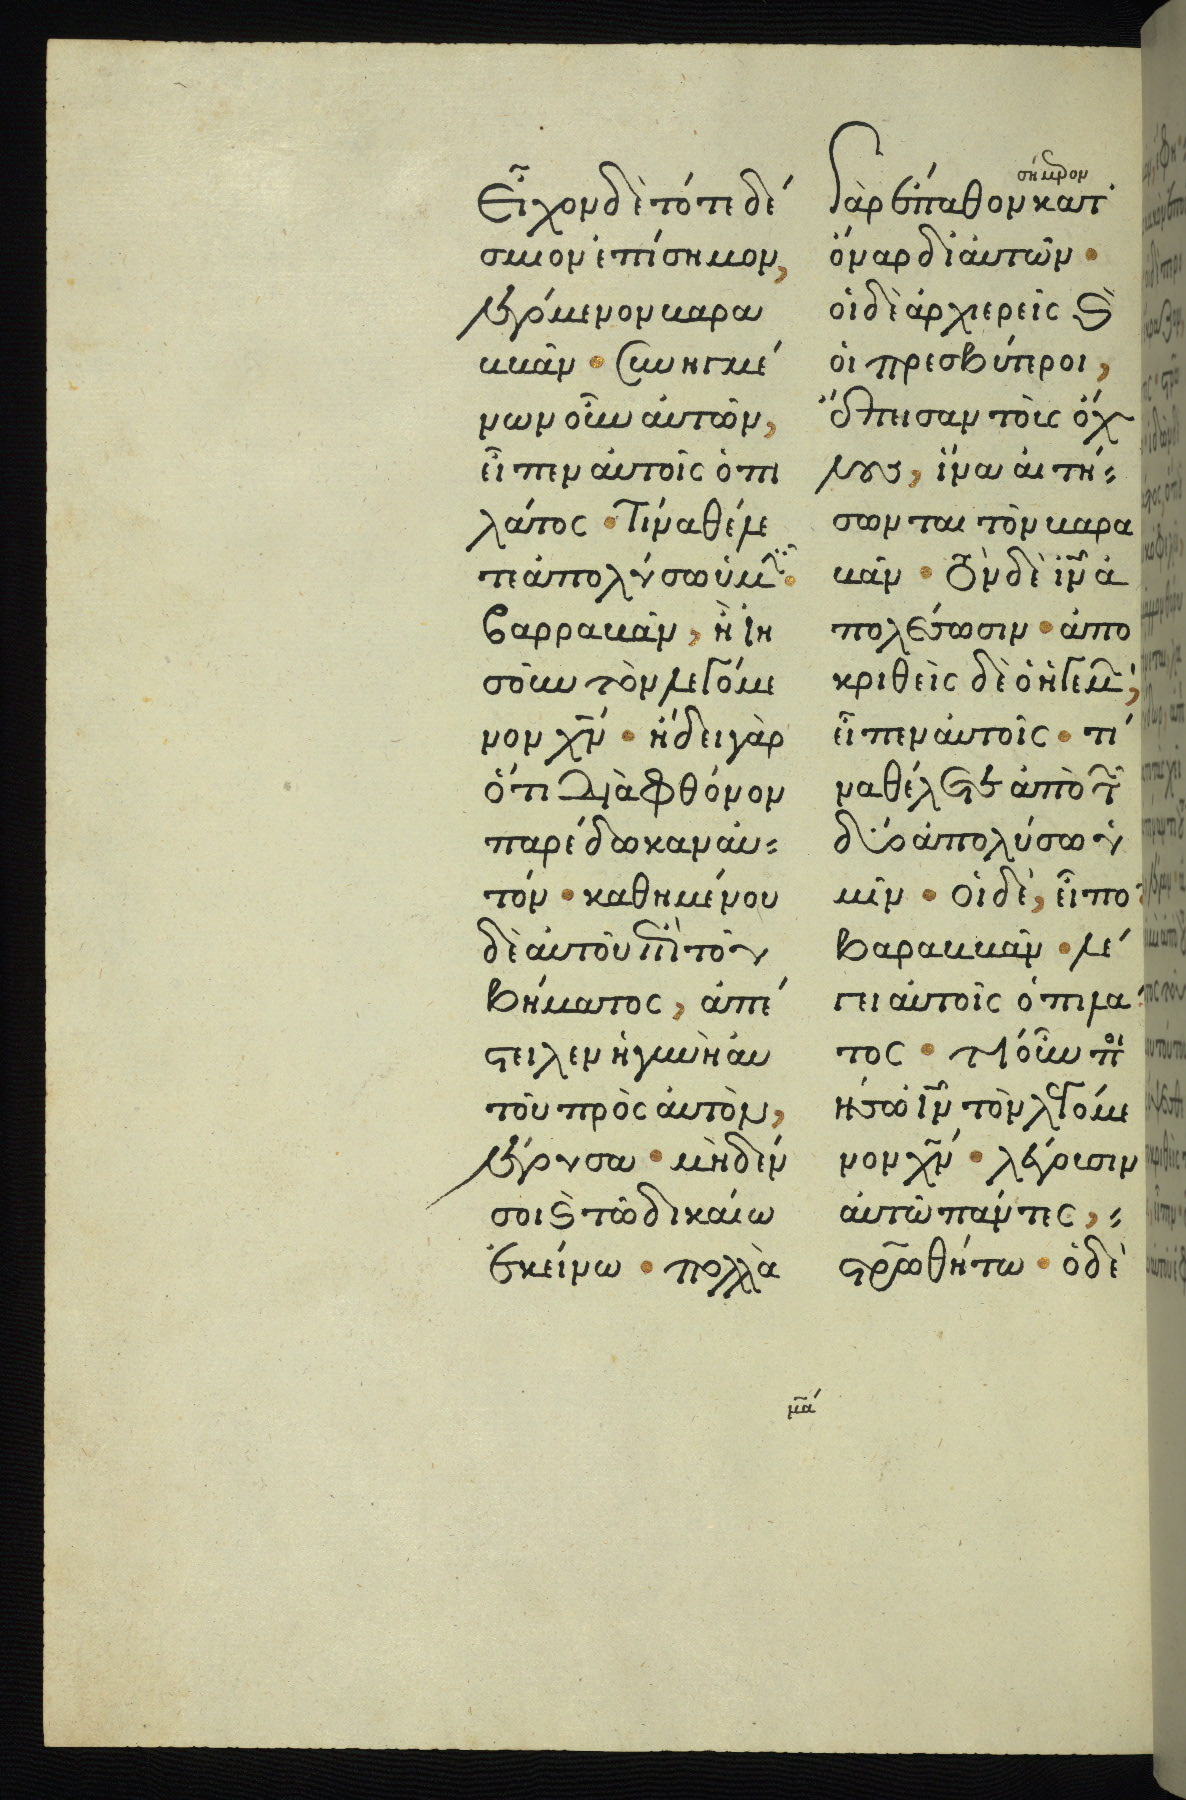 Εἶχον δὲ τότε δέ
σμιον ἐπίσημον,
λεγόμενον βαρα
ββᾶν · Συνηγμέ
νων οὖν αὐτῶν,
εἶπεν αὐτοῖς ὁ πι
λάτος · Τίνα θέλε
τε ἀπολύσω ὑμῖν ·
βαρραββᾶν, ἢ ἰη
σοῦν τὸν λεγόμε
νον χν̅ · ἤδει γὰρ
ὅτι διὰ φθόνον
παρέδωκαν αὐ
τόν · καθημένου
δὲ αὐτοῦ ἐπὶ τοῦ
βήματος, ἀπέ
στειλεν ἡ γυνὴ αὐ
τοῦ πρὸς αὐτὸν,
λέγουσα · μηδέν
σοι καὶ τῶ δικαίω
ἐκείνω · πολλὰ
γὰρ ἔπαθον σήμερον κατ
ὄναρ δι αὐτὸν ·
οἱ δὲ ἀρχιερεῖς καὶ
οἱ πρεσβύτεροι,
ἔπεισαν τοὺς ὄχ
λους, ἵνα αἰτή
σωνται τὸν βαρα
βᾶν · τὸν δὲ ιν̅ ἀ
πολέσωσιν · ἀπο
κριθεὶς δὲ ὁ ἡγεμὼν,
εἶπεν αὐτοῖς · τί
να θέλετε ἀπὸ τῶν
δύο ἀπολύσω ὑ
μῖν · οἱ δὲ, εἶπον
βαραββᾶν · λέ
γει αὐτοῖς ὁ πιλά
τος · τί οὖν ποι
ήσω ιν̅ τὸν λεγόμε
νον χν̅ · λέγουσιν
αὐτῶ πάντες,
στρωθήτω · ὁ δὲ